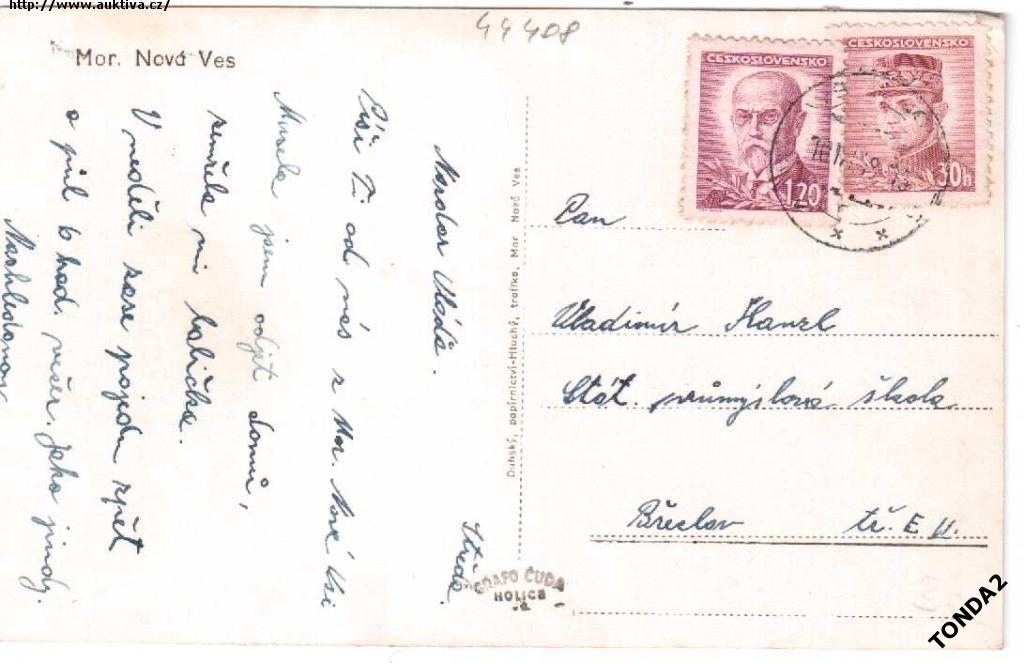 http://www.auktiva.cz/
44408
Mor. Nová Ves
Středa.
Nazdar Vláďa.
Píši Ti od nás z Mor. Nové Vsi
Musela jsem odjet domů,
zemřela mi babička.
V neděli zase pojedu zpět
a půl 6 hod. večer. Jako jindy.
Nashledanou
Duhský, papírnictví-Hluchý, trafika, Mor. Nová Ves
GRAFO ČUDA
HOLICE
ČESKOSLOVENSKO
1.20
ČESKOSLOVENSKO
30h
Pan
Vladimír Hanzl
Stát. průmyslová škola
Břeclav tř. E II.
TONDA2